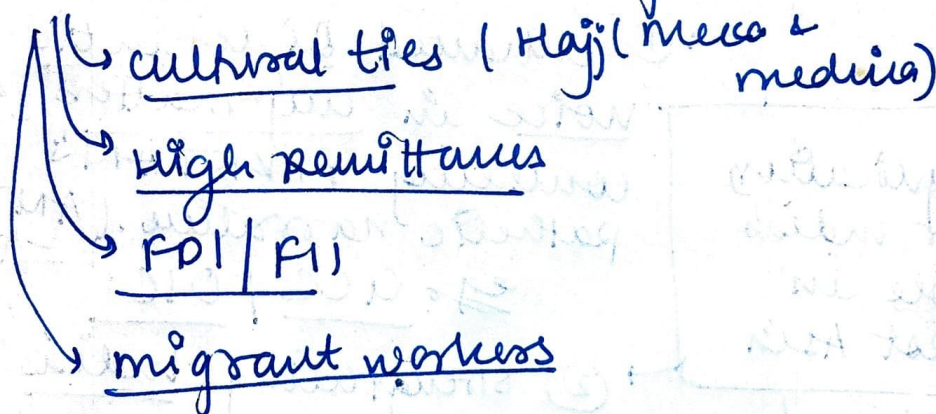 cultural ties ( Hajj ( Mecca &
medina)
High Remittances
FDI / FII
migrant workers